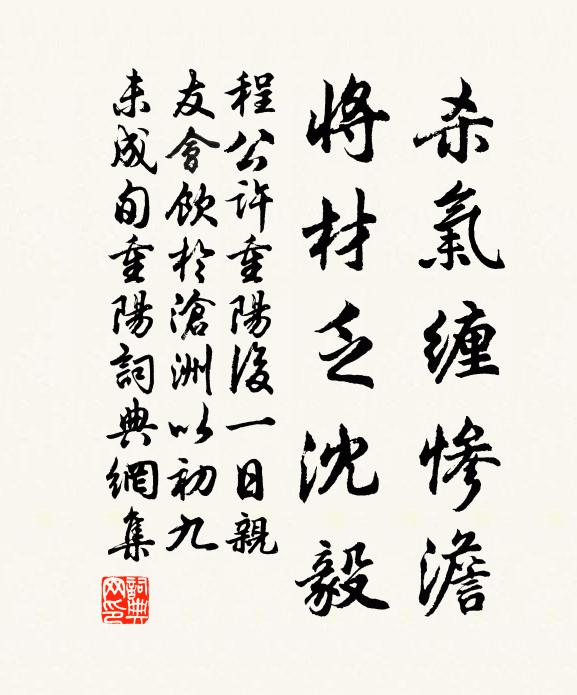 杀氣缠惨澹
將材乏沈毅
程公許重陽後一日親
友會飲於滄洲以初九
未成旬重陽詞典網集
詞典網印